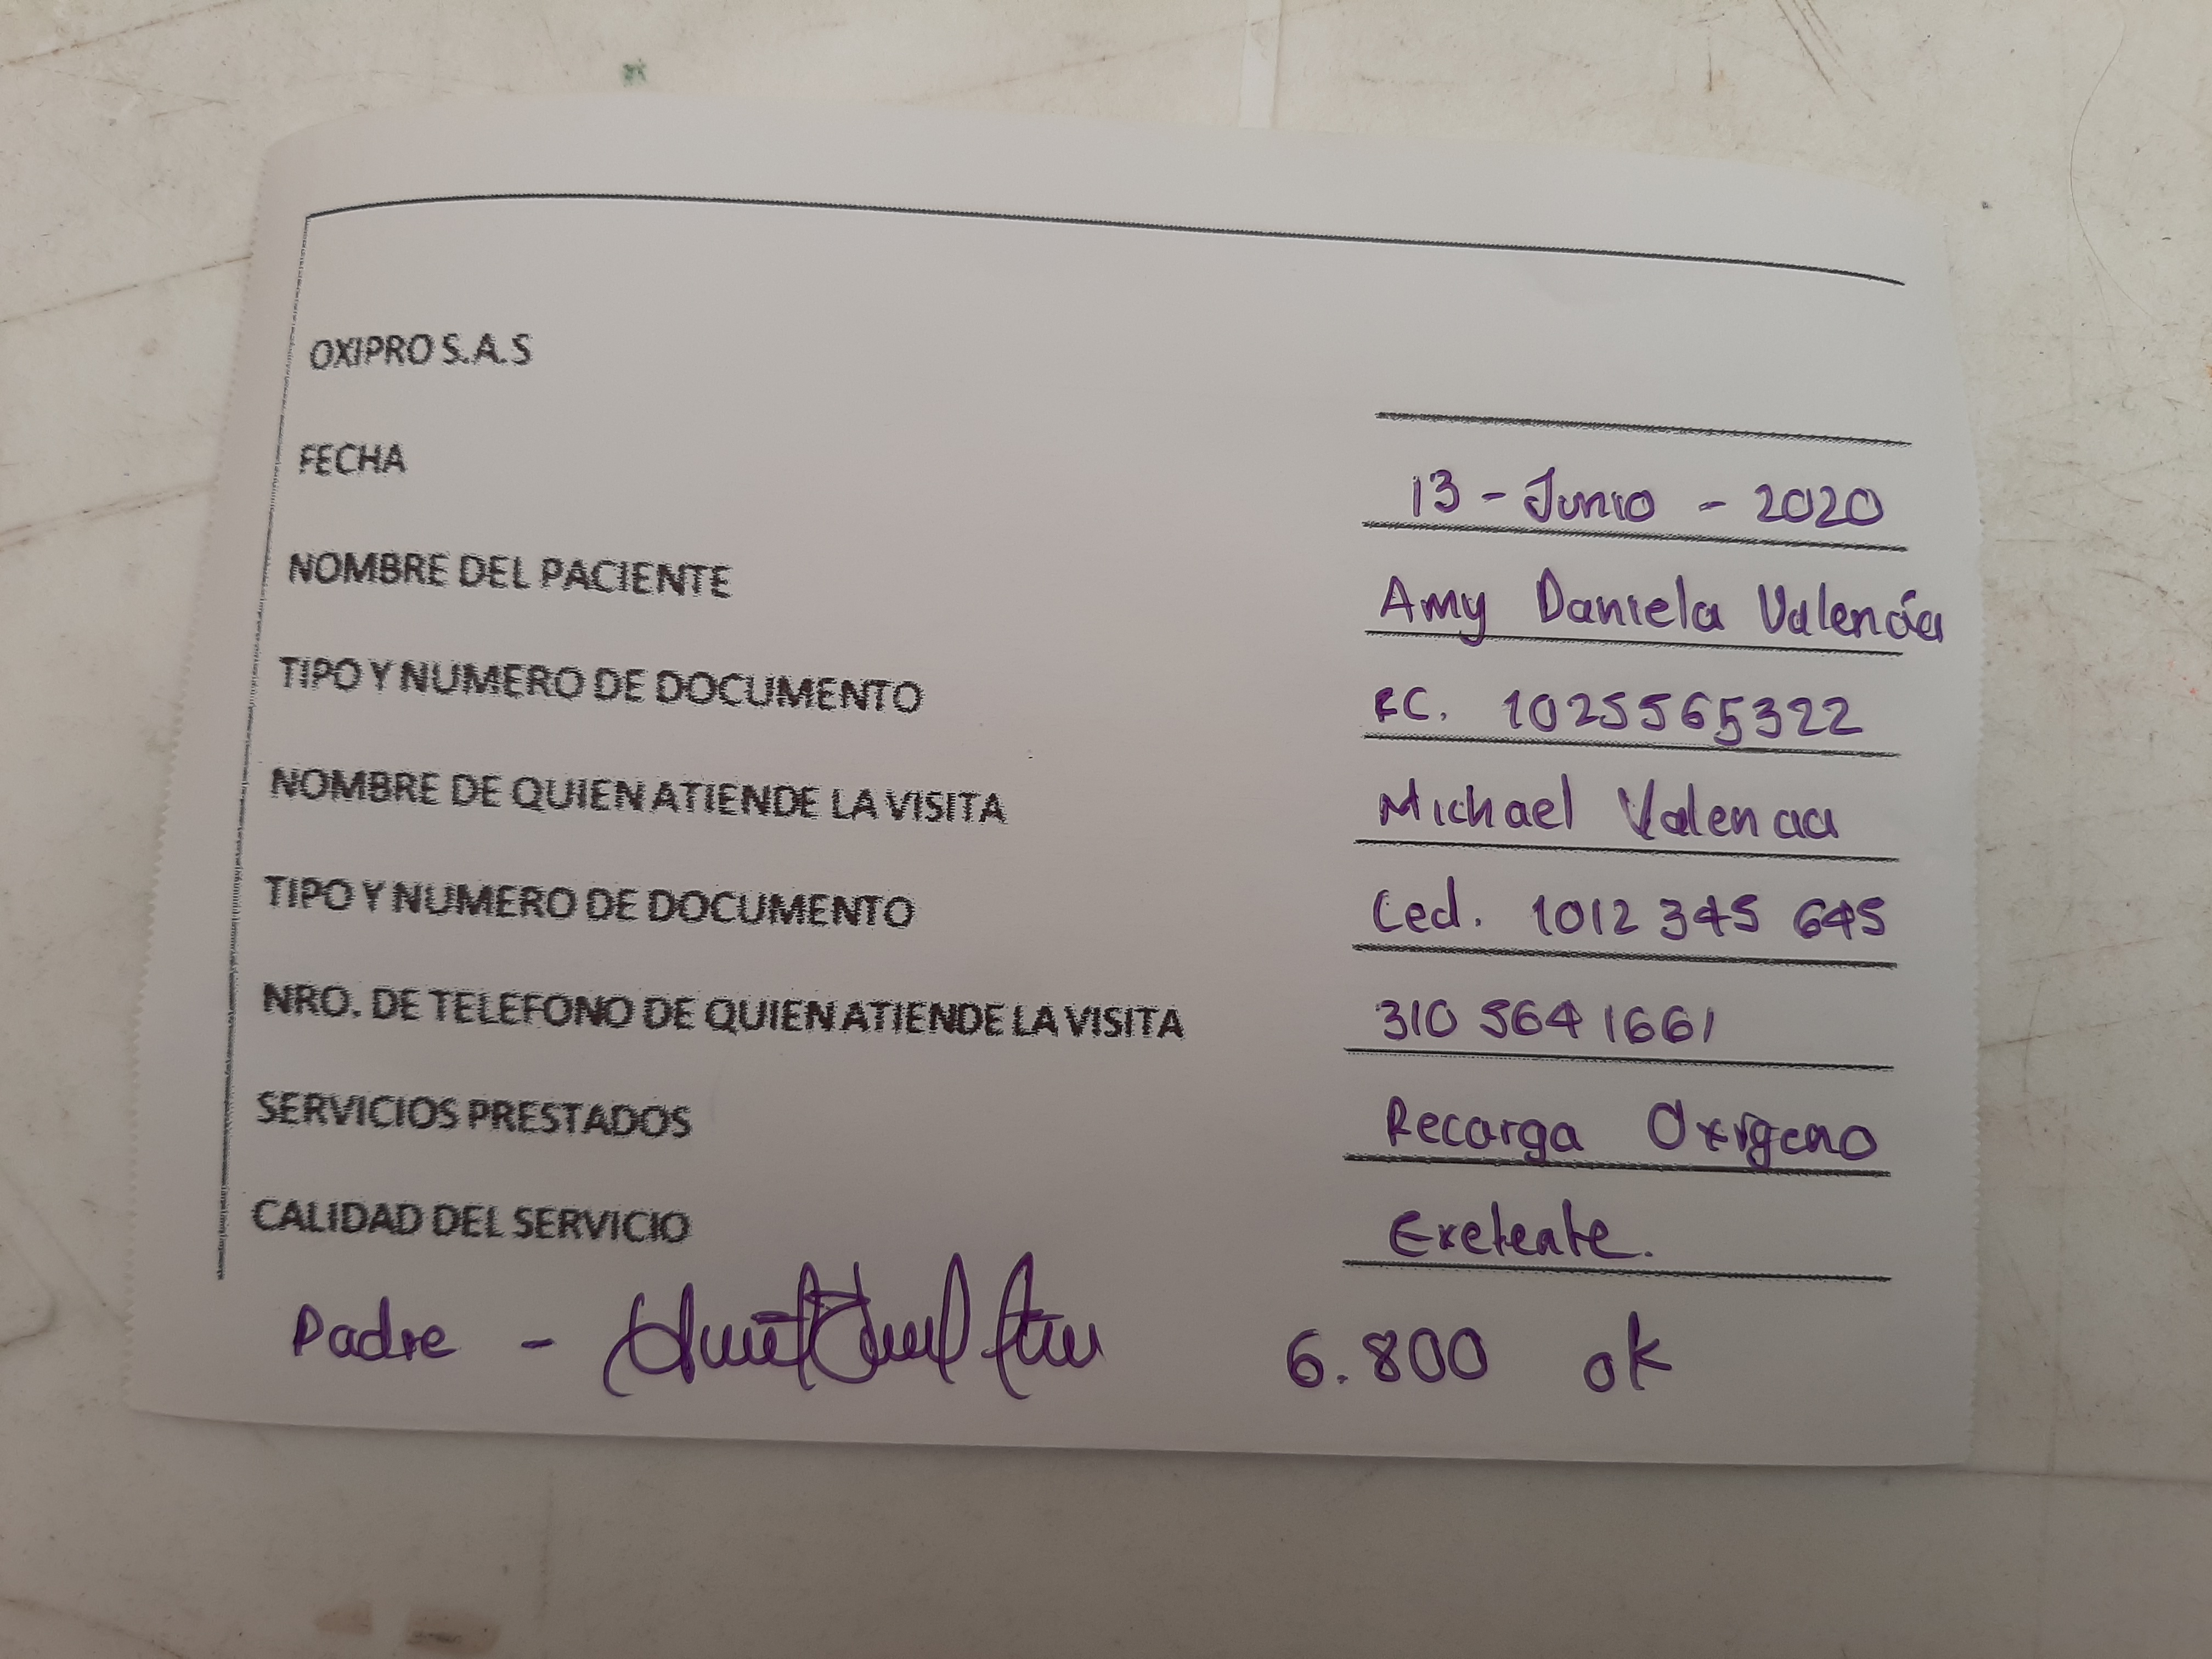 OXIPRO S.A.S
FECHA 13 - Junio - 2020
NOMBRE DEL PACIENTE Amy Daniela Valencia
TIPO Y NUMERO DE DOCUMENTO RC. 1025565322
NOMBRE DE QUIEN ATIENDE LA VISITA Michael Valencia
TIPO Y NUMERO DE DOCUMENTO Ced. 1012 345 645
NRO. DE TELEFONO DE QUIEN ATIENDE LA VISITA 310 564 1661
SERVICIOS PRESTADOS Recarga Oxigeno
CALIDAD DEL SERVICIO Exelente.
Padre - 6.800 ok